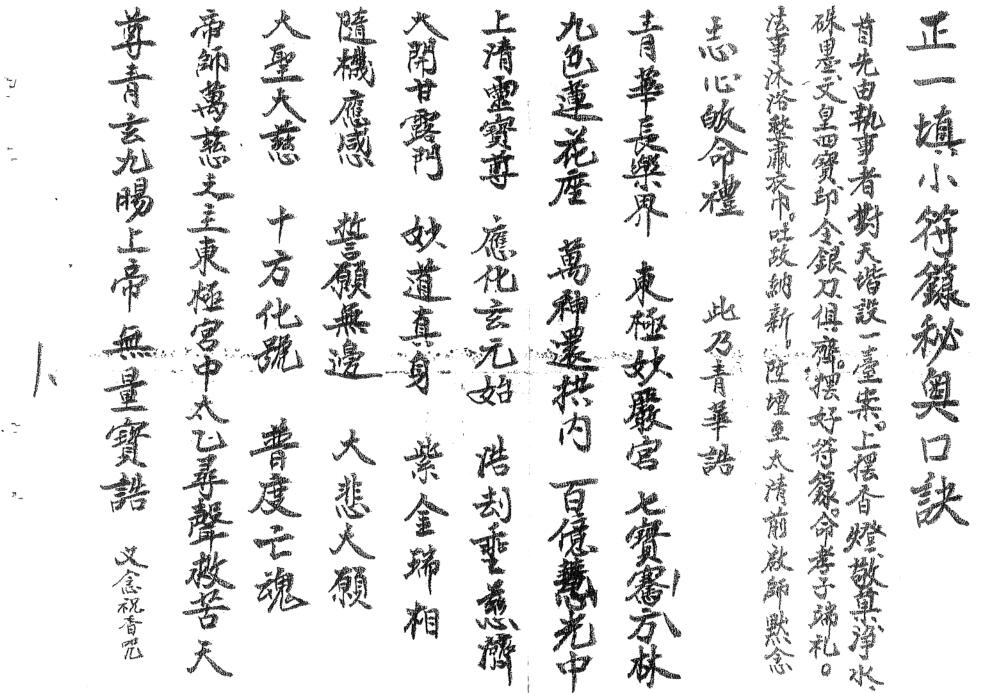 正一填小符籙秘奧口訣
首先由執事者對天堦設一臺案。上擺香燈、敬菓、淨水、
硃墨、文皇四寶、印令、銀刀俱齊。擺好符籙。命孝子端礼。
法事沐浴整肅衣巾。吐故納新。陞壇至太清前啟師默念
志心皈命禮 此乃青華誥
青華長樂界 東極妙嚴宮 七寶騫方林
九色蓮花座 萬神還拱內 百億慧光中
上清靈寶尊 應化玄元始 浩刦垂慈濟
大開甘露門 妙道真身 紫金瑞相
隨機應感 誓願無邊 大悲大願
大聖大慈 十方化號 普度亡魂
帝師萬慈之主東極宮中太乙尋聲救苦天
尊青玄九賜上帝無量寶誥 又念祝香咒